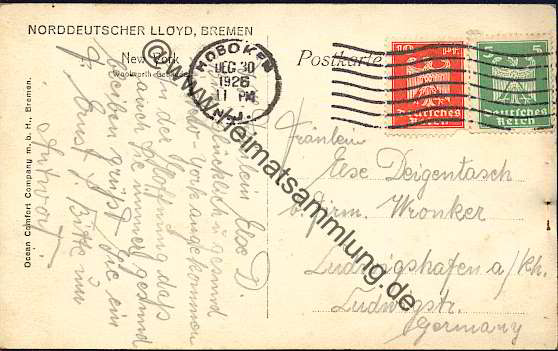 NORDDEUTSCHER LLOYD, BREMEN
New York
(Woolworth Gebäude)
Postkarte
HOBOKEN
DEC 30
1926
11 PM
N.J.
10 Pf
Deutsches
Reich
5 5
Deutsches
Reich
Fräulein
Else Deigentasch
b. Firm. Wronker
Ludwigshafen a/Rh.
Ludwigstr.
Germany
Fräulein Else D.
glücklich u gesund
New-York angekommen
Hoffnung daß
Sie immer gesund
bleiben grüßt Sie ein
Ernst J. Bitte um
Antwort.
Ocean Comfort Company m. b. H., Bremen.
©www.heimatsammlung.de